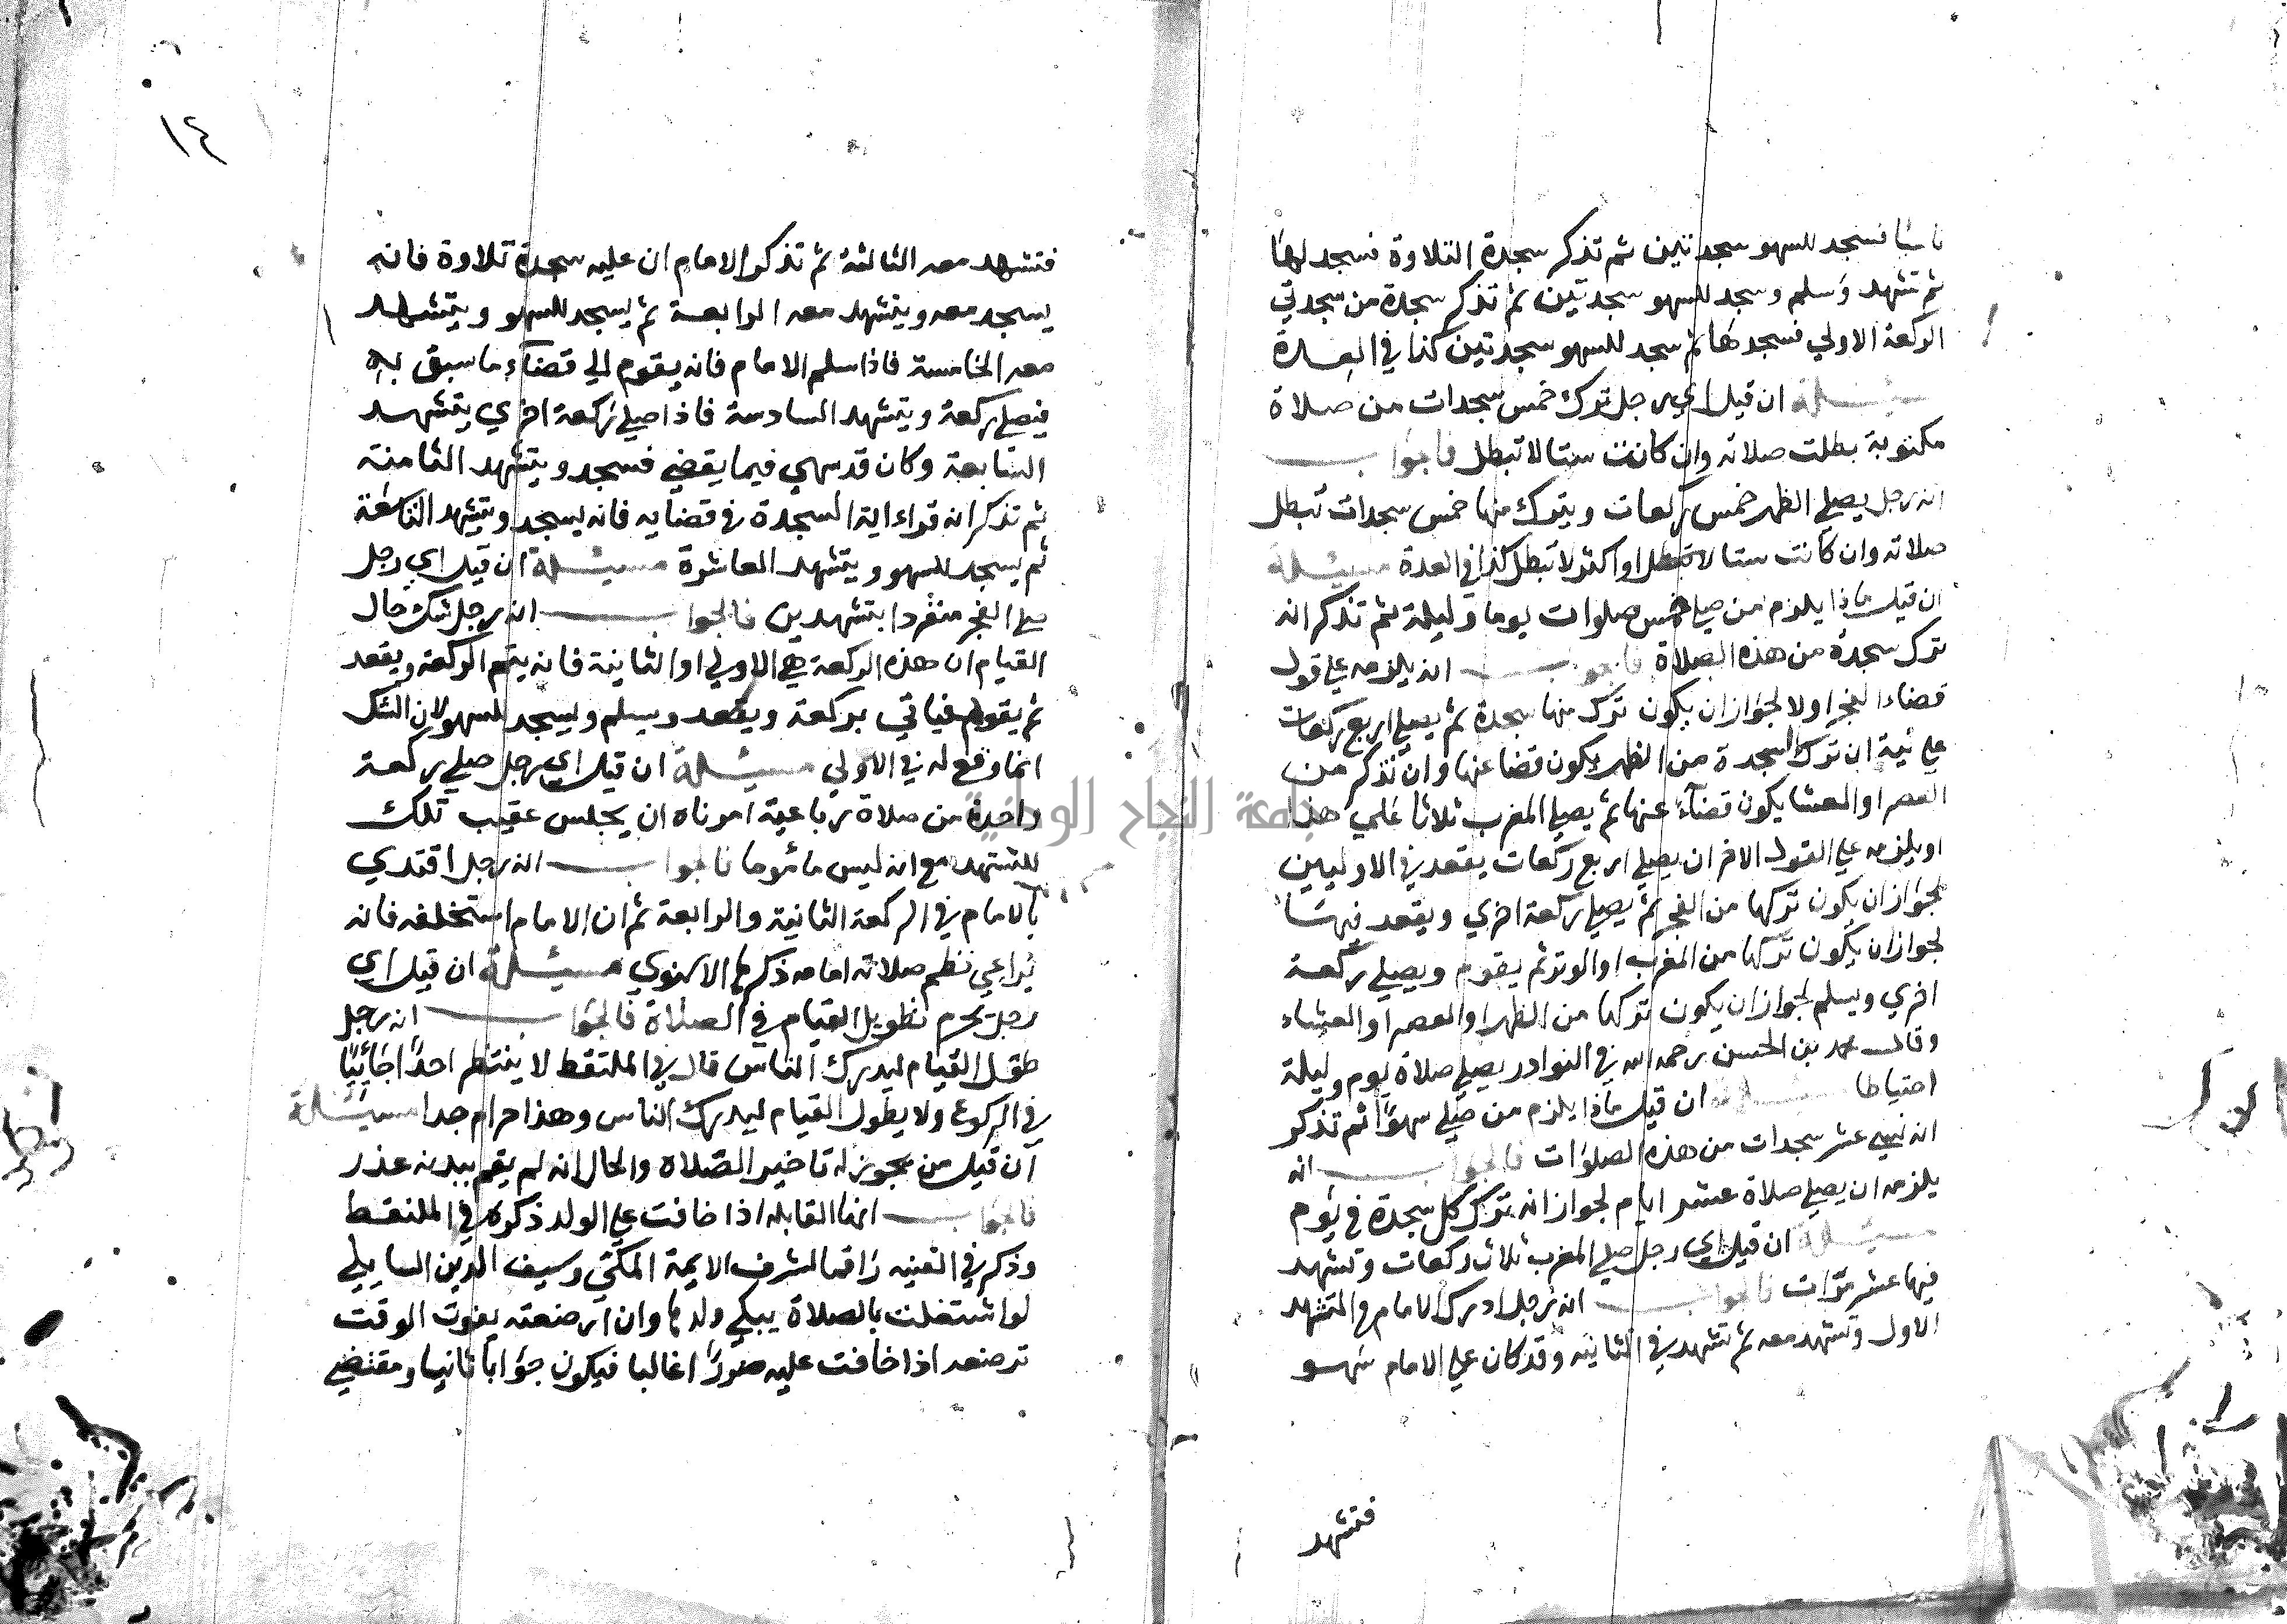 ناسيا فسجد للسهو سجدتين ثم تذكر سجدة التلاوة فسجد لها
ثم تشهد وسلم وسجد للسهو سجدتين ثم تذكر سجدة من سجدتي
الركعة الاولي فسجدها ثم سجد للسهو سجدتين كذا في العدة
مسئلة ان قيل اي رجل ترك خمس سجدات من صلاة
مكتوبة بطلت صلاته وان كانت ستا لا تبطل فالجواب
انه رجل يصلي الظهر خمس ركعات ويترك منها خمس سجدات تبطل
صلاته وان كانت ستا لا تبطل او اكثر لا تبطل كذا في العدة مسئلة
ان قيل ماذا يلزم من صلي خمس صلوات يوما وليلة ثم تذكر انه
ترك سجدة من هذه الصلاة فالجواب انه يلزمه علي قول
قضاء الفجر اولا لجواز ان يكون ترك منها سجدة ثم يصلي اربع ركعات
علي نية ان ترك السجدة من الظهر يكون قضا عنها وان تذكر من
العصر او العشا يكون قضآء عنها ثم يصلي المغرب ثلاثا علي هذا
او يلزمه علي القول الاخر ان يصلي اربع ركعات يقعد في الاوليين
لجواز ان يكون تركها من الفجر ثم يصلي ركعة اخري ويقعد فيها
لجواز ان يكون تركها من المغرب او الوتر ثم يقوم ويصلي ركعة
اخري ويسلم لجواز ان يكون تركها من الظهر او العصر او العشاء
وقال محمد بن الحسن رحمه الله في النوادر يصلي صلاة يوم وليلة
احتياطا مسئلة ان قيل ماذا يلزم من صلي سهوا ثم تذكر
انه نسي عشر سجدات من هذه الصلوات فالجواب انه
يلزمه ان يصلي صلاة عشر ايام لجواز انه ترك كل سجدة في يوم
مسئلة ان قيل اي رجل صلي المغرب ثلاث ركعات وتشهد
فيها عشر مرات فالجواب انه رجل ادرك الامام في التشهد
الاول وتشهد معه ثم تشهد في الثانيه وقد كان علي الامام سهو
فتشهد
١٤
فتشهد معه الثالثة ثم تذكر الامام ان عليه سجدة تلاوة فانه
يسجد معه ويتشهد معه الرابعة ثم يسجد للسهو ويتشهد
معه الخامسة فاذا سلم الامام فانه يقوم الي قضآء ما سبق به
فيصلي ركعة ويتشهد السادسة فاذا صلي ركعة اخري يتشهد
السابعة وكان قد سهي فيما يقضي فسجد ويتشهد الثامنة
ثم تذكر انه قراء اية السجدة في قضايه فانه يسجد ويتشهد التاسعة
ثم يسجد للسهو ويتشهد العاشرة مسئلة ان قيل اي رجل
صلي الفجر منفردا بتشهدين فالجواب انه رجل شك حال
القيام ان هذه الركعة هي الاولي او الثانية فانه يتم الركعة ويقعد
ثم يقوم فياتي بركعة ويقعد ويسلم ويسجد للسهو لان الشك
انما وقع له في الاولي مسئلة ان قيل اي رجل صلي ركعة
واحدة من صلاة رباعية امرناه ان يجلس عقيب تلك
للتشهد مع انه ليس ماموما فالجواب انه رجل اقتدي
بالامام في الركعة الثانية والرابعة ثم ان الامام استخلفه فانه
يراعي نظم صلاته امامه ذكرها الاسنوي مسئلة ان قيل اي
رجل يحرم تطويل القيام في الصلاة فالجواب انه رجل
طول القيام ليدرك الناس قال في الملتقط لا ينتظر احدا جائيا
في الركوع ولا يطول القيام ليدرك الناس وهذا حرام جدا مسئلة
ان قيل من يجوز له تاخير الصلاة والحال انه لم يقم ببدنه عذر
فالجواب انها القابلة اذا خافت علي الولد ذكره في الملتقط
وذكر في القنيه راقما لشرف الايمة المكي وسيف الدين السايلي
لو اشتغلت بالصلاة يبكي ولدها وان ارضعته يفوت الوقت
ترضعه اذا خافت عليه ضررا غالبا فيكون جوابا ثانيا ومقتضي
جامعة النجاح الوطنية